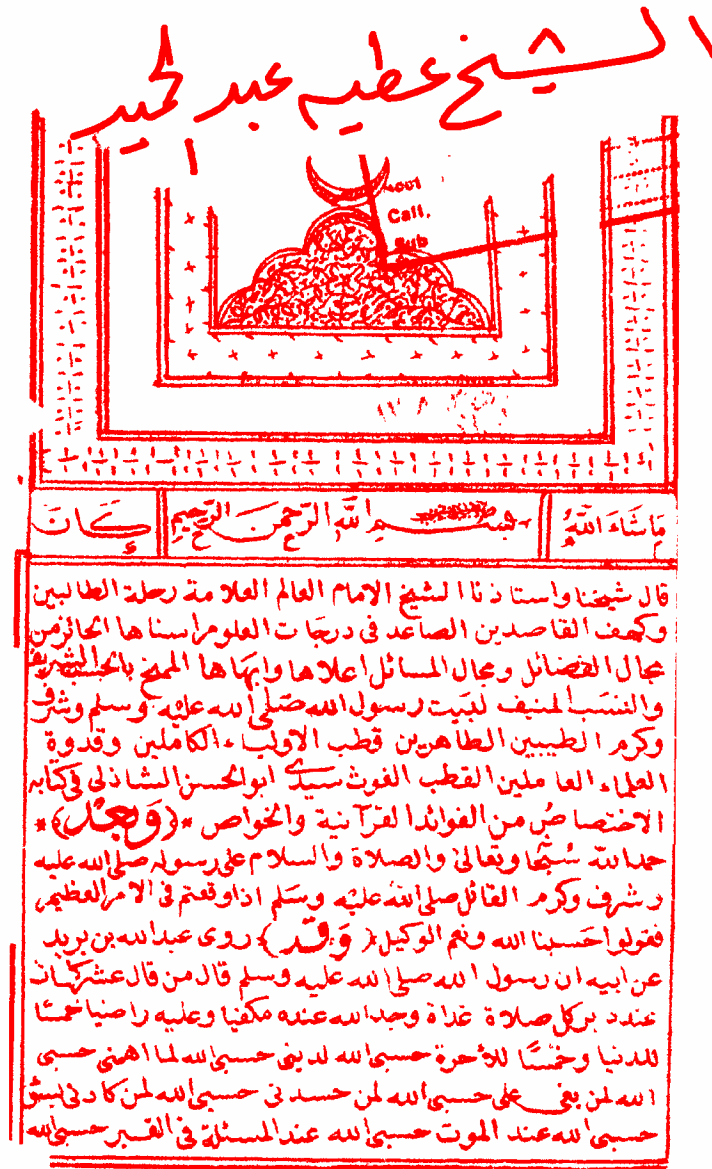 الشيخ عطيه عبد الحميد
Call,
Sub
ما شاء الله
بسم الله الرحمن الرحيم
كان
قال شيخنا واستاذنا الشيخ الامام العالم العلامة رحلة الطالبين
وكهف القاصدين الصاعد فى درجات العلوم اسناها الحائز من
مجال الفضائل ومجال المسائل اعلاها وابهاها الممنح بالحسب الشريف
والنسب المنيف لبيت رسول الله صلى الله عليه وسلم وشرف
وكرم الطيبين الطاهرين قطب الاولياء الكاملين وقدوة
العلماء العاملين القطب الغوث سيدى ابو الحسن الشاذلى فى كتابه
الاختصاص من الفوائد القرآنية والخواص *(وبعد)*
حمد الله سبحا وتعالى والصلاة والسلام على رسوله صلى الله عليه
وشرف وكرم القائل صلى الله عليه وسلم اذا وقعتم فى الامر العظيم
فقولوا حسبنا الله ونعم الوكيل (وقد) روى عبد الله بن بريد
عن ابيه ان رسول الله صلى الله عليه وسلم قال من قال عشر كلمات
عند دبر كل صلاة غداة وجد الله عنده مكفيا وعليه راضيا خمسًا
للدنيا وخمسًا للأخرة حسبى الله لدينى حسبى الله لما اهمنى حسبى
الله لمن بغى على حسبى الله لمن حسدنى حسبى الله لمن كادنى بسؤ
حسبى الله عند الموت حسبى الله عند المسئلة فى القبر حسبى الله